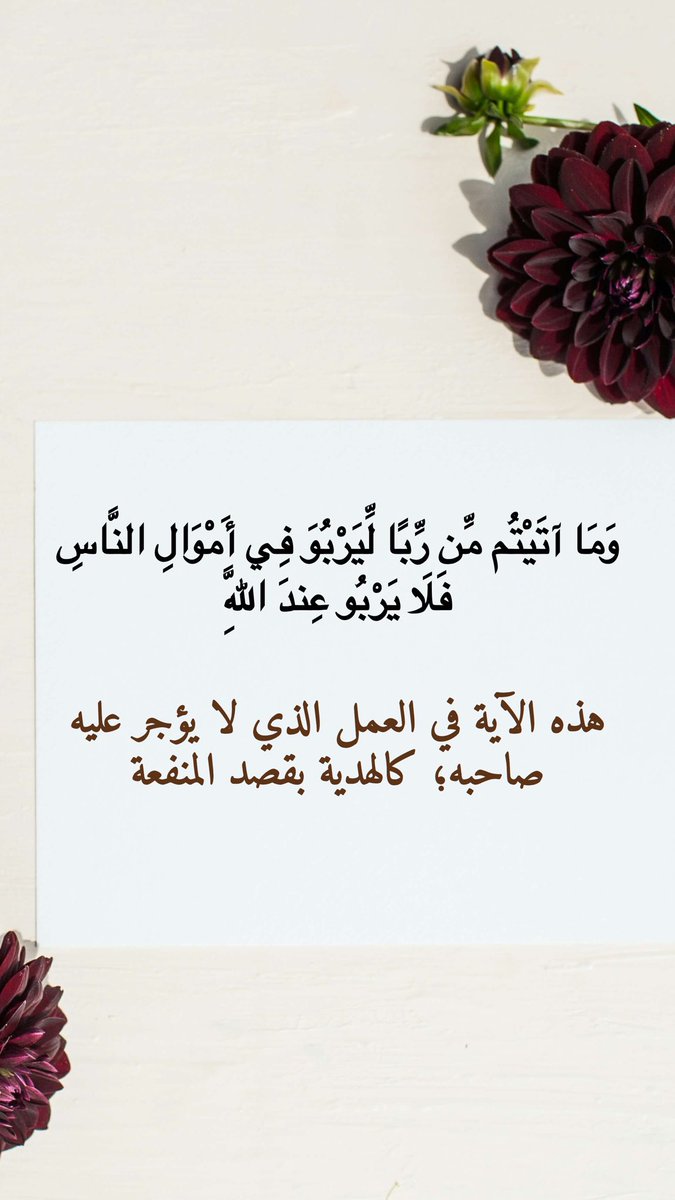 وَمَا آتَيْتُم مِّن رِّبًا لِّيَرْبُوَ فِي أَمْوَالِ النَّاسِ
فَلَا يَرْبُو عِندَ اللَّهِ
هذه الآية في العمل الذي لا يؤجر عليه
صاحبه؛ كالهدية بقصد المنفعة